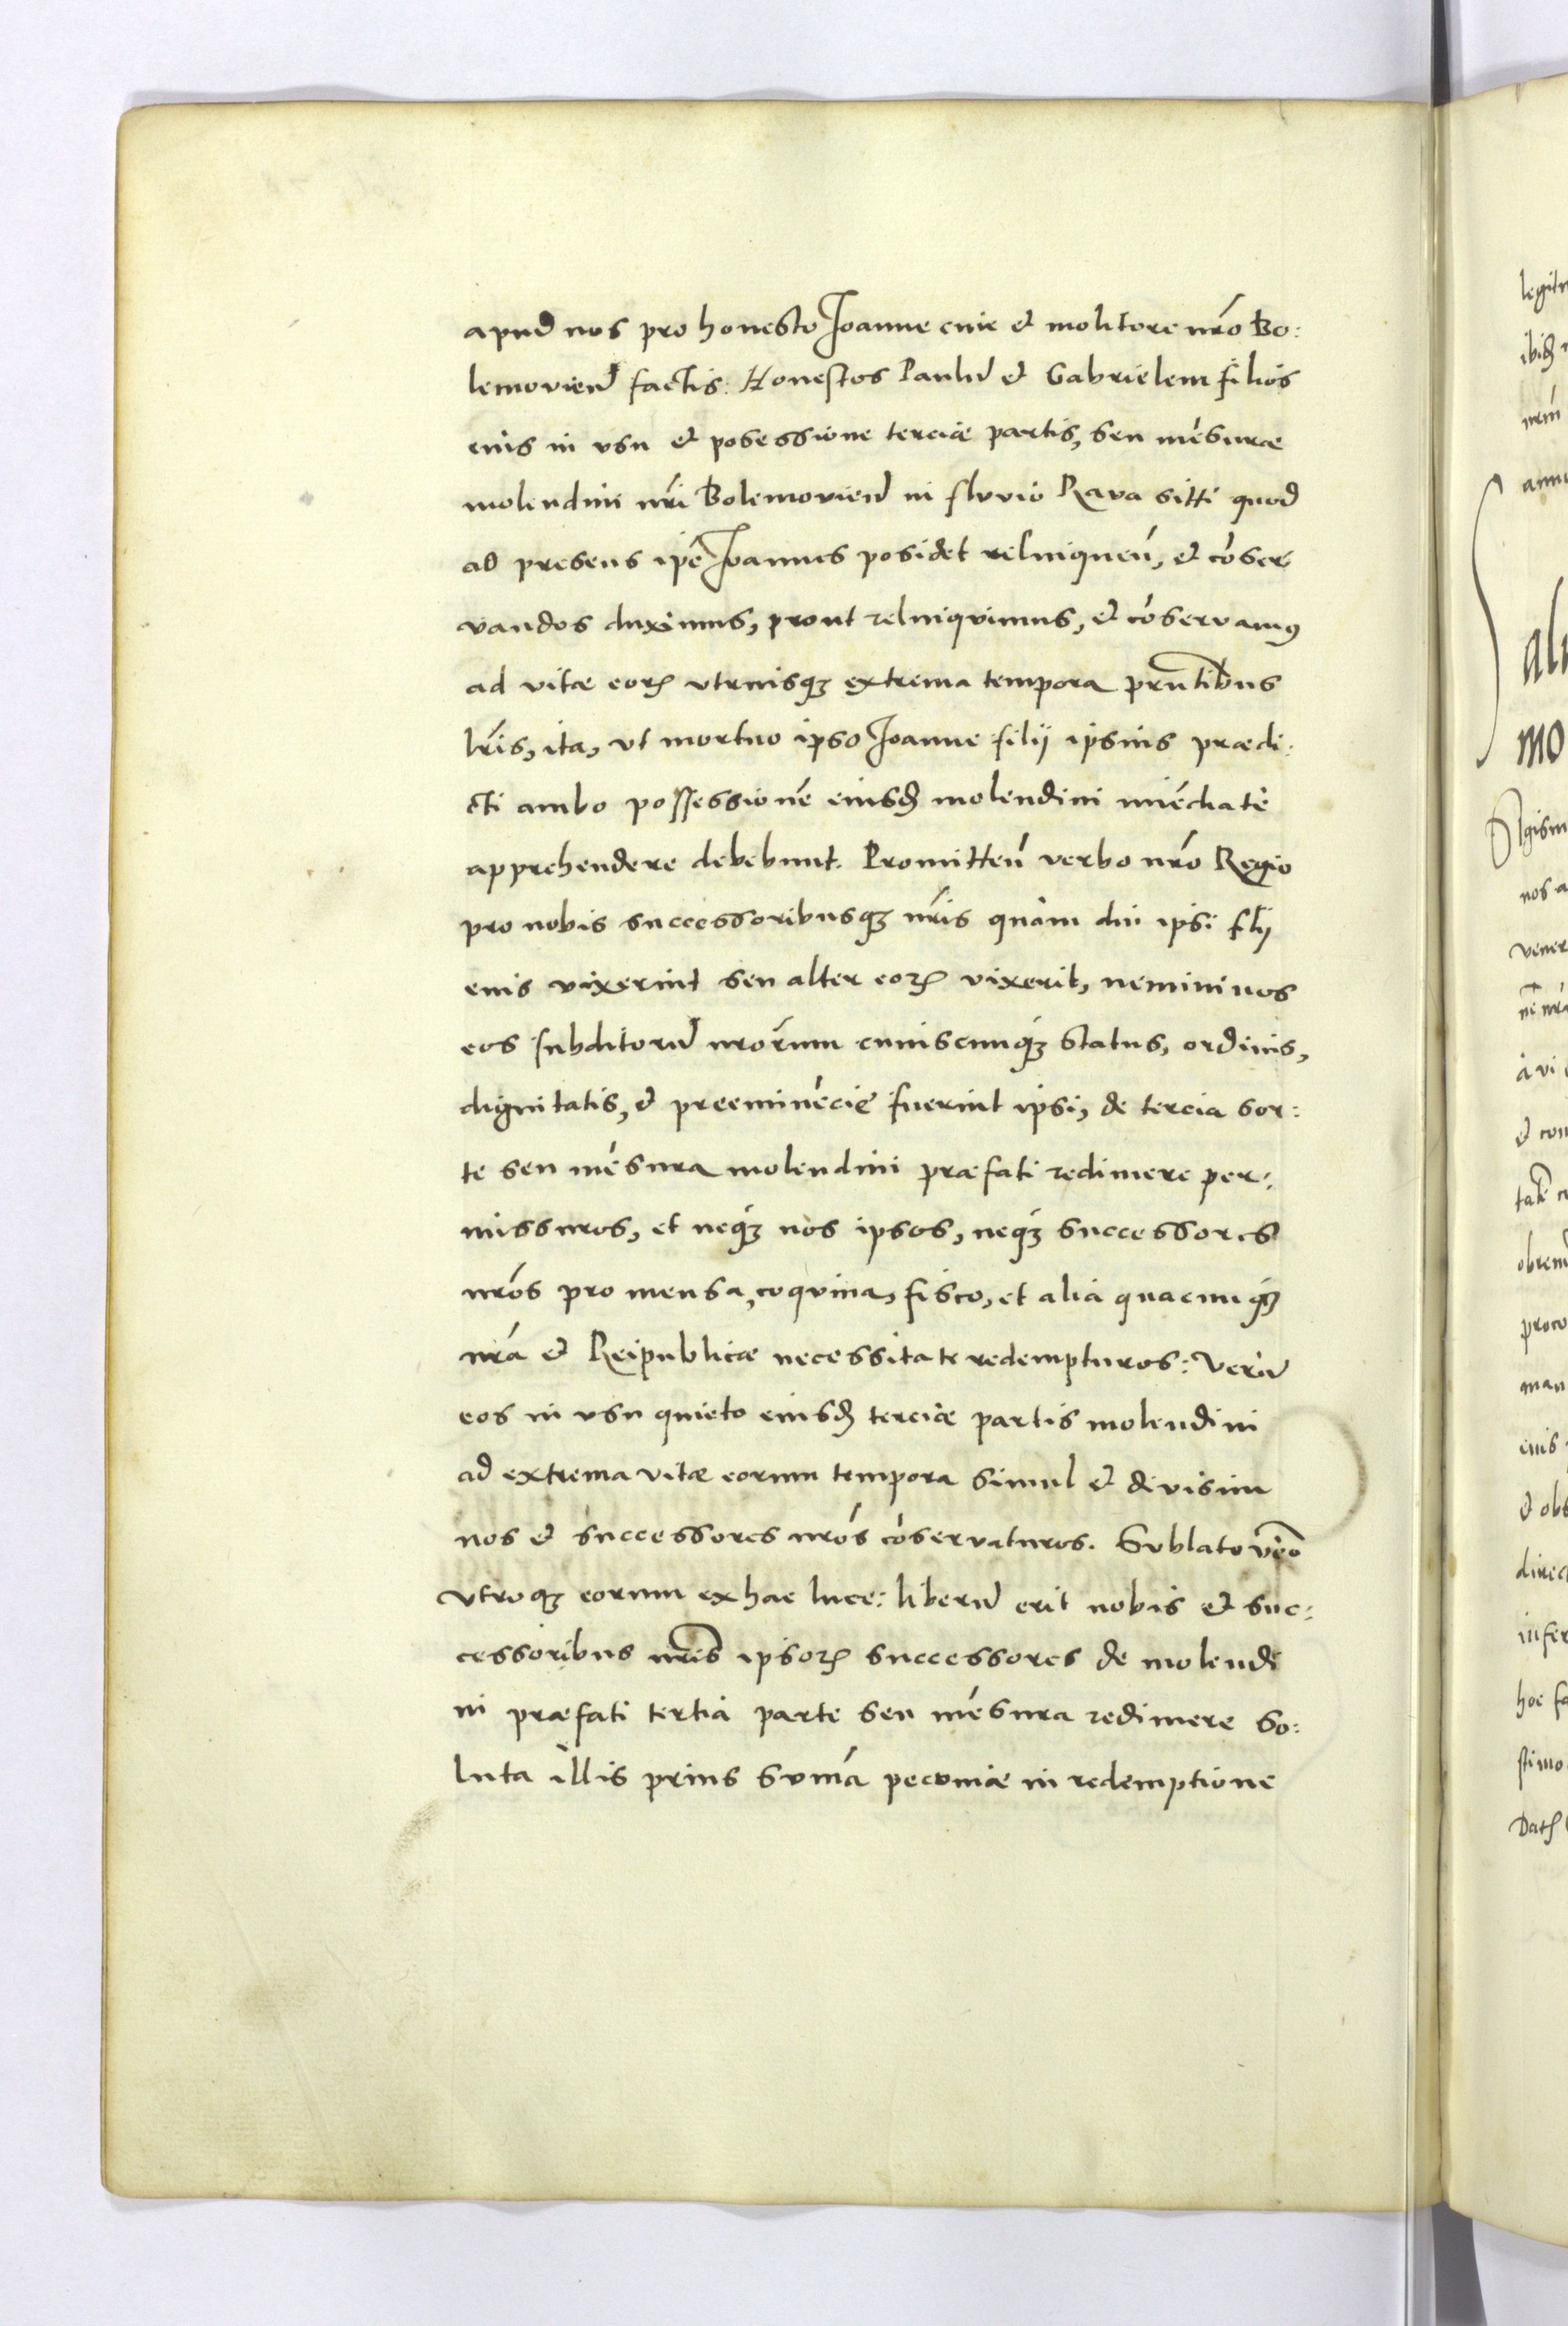 apud nos pro honesto Joanne cive et molitore nr̃o Bo:
lemovieñ factis: Honestos Paulũ et Gabrielem filios
eius in usu et posessione terciæ partis, seu mẽsuræ
molendini nr̃i Bolemovieñ in fluvio Rava sitti quod
ad presens ip̃e Joannes posidet relinqueñ, et cõser
vandos duximus, prout relinquimus, et cõservamꝰ
ad vitæ eorꝝ utriusqꝫ extrema tempora prñtibus
lr̃is, ita, ut mortuo ipso Joanne filij ipsius prædi:
cti ambo possessionẽ eiusđ molendini imẽdiatè
apprehendere debebunt. Promitteñ verbo nr̃o Regio
pro nobis successoribusqꝫ nr̃is quàm diu ipsi filij
eius vixerint seu alter eorꝝ vixerit, nemini nos
eos subditorũ nrõrum cuiuscunqꝫ status, ordinis,
dignitatis, et preeminẽcie fuerint ipsi, de tercia sor:
te seu mẽsura molendini præfati redimere per:
missuros, et neqꝫ nos ipsos, neqꝫ successores
nrõs pro mensa, coquina, fisco, et alia quacunqꝫ
nrã et Reipublicæ necessitate redempturos: verũ
eos in usu quieto eiusđ terciæ partis molendini
ad extrema vitæ eorum tempora simul et divisim
nos et successores nrõs cõservaturos. Sublato verò
utroqꝫ eorum ex hac luce: liberũ erit nobis et suc:
cessoribus nr̃is ipsorꝝ successores de molendi
ni præfati tertia parte seu mẽsura redimere so:
luta illis prius sum̃a pecuniæ in redemptione